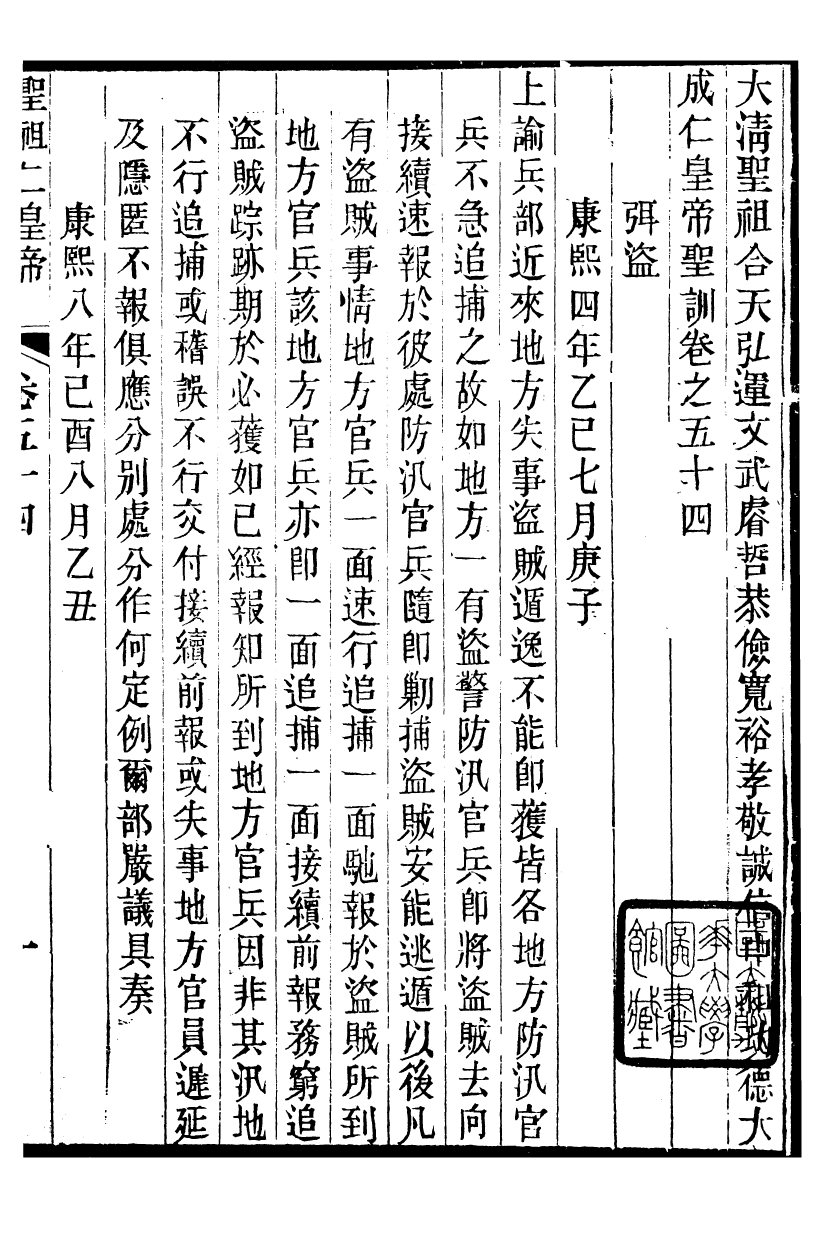 大清聖祖合天弘運文武睿哲恭儉寬裕孝敬誠信德大
成仁皇帝聖訓卷之五十四
弭盜
康熙四年乙巳七月庚子
上諭兵部近來地方失事盜賊遁逸不能卽獲皆各地方防汛官
兵不急追捕之故如地方一有盜警防汛官兵卽將盜賊去向
接續速報於彼處防汛官兵隨卽勦捕盜賊安能逃遁以後凡
有盜賊事情地方官兵一面速行追捕一面馳報於盜賊所到
地方官兵該地方官兵亦卽一面追捕一面接續前報務窮追
盜賊踪跡期於必獲如已經報知所到地方官兵因非其汛地
不行追捕或稽誤不行交付接續前報或失事地方官員遲延
及隱匿不報俱應分別處分作何定例爾部嚴議具奏
康熙八年己酉八月乙丑
聖祖仁皇帝
卷五十四
一
大學
圖書
館藏